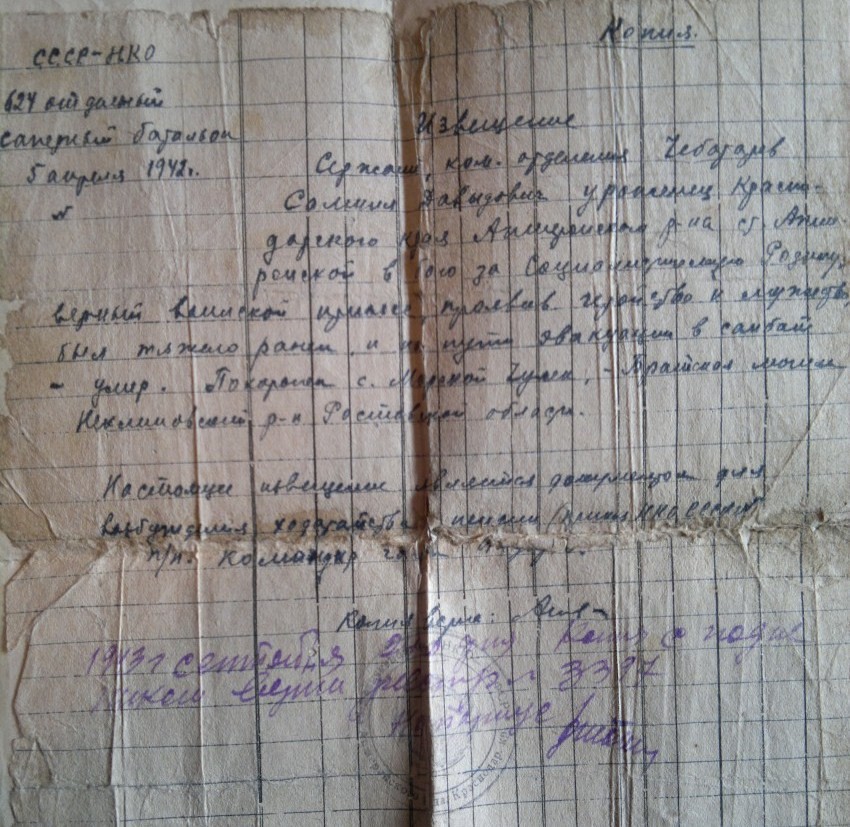 Копия.
СССР-НКО
624 отдельный
саперный батальон
5 апреля 1942г.
№
Извещение
Сержант, ком. отделения Чеботарев
Самуил Давыдович уроженец Красно-
дарского края Апшеронский р-на ст. Апше-
ронской в бою за Социалистическую Родину,
верный воинской присяге, проявив геройство и мужество,
был тяжело ранен, и на пути эвакуации в санбат
- умер. Похоронен с. Морской Чулек, - Братская могила
Неклиновский р-н Ростовской области.
Настоящее извещение является документом для
возбуждения ходатайства пенсии (приказ НКО СССР №
п/п. Командир
Копия верна:
1943г сентября 2 дня Копия с подлин
ником верна реестр № 3317
Нотариус